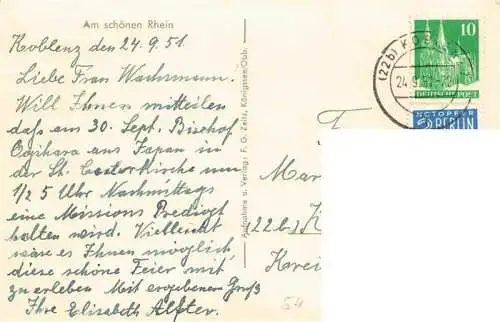 Am schönen Rhein
Koblenz den 24.9.51.
Liebe Frau Wachsmann.
Will Ihnen mitteilen
daß am 30. Sept. Bischof
Ogihara aus Japan in
der St. Castorkirche um
1/2 5 Uhr Nachmittags
eine Missions Predigt
halten wird. Vielleicht
wäre es Ihnen möglich,
diese schöne Feier mit
zu erleben. Mit ergebenem Gruß
Ihre Elisabeth Alfter.
Aufnahme u. Verlag: F. G. Zeitz, Königssee/Obb.
10
DEUTSCHE POST
(22b) KOBL
24.9.51
NOTOPFER
BERLIN
Mar
22b) K
Krei
54